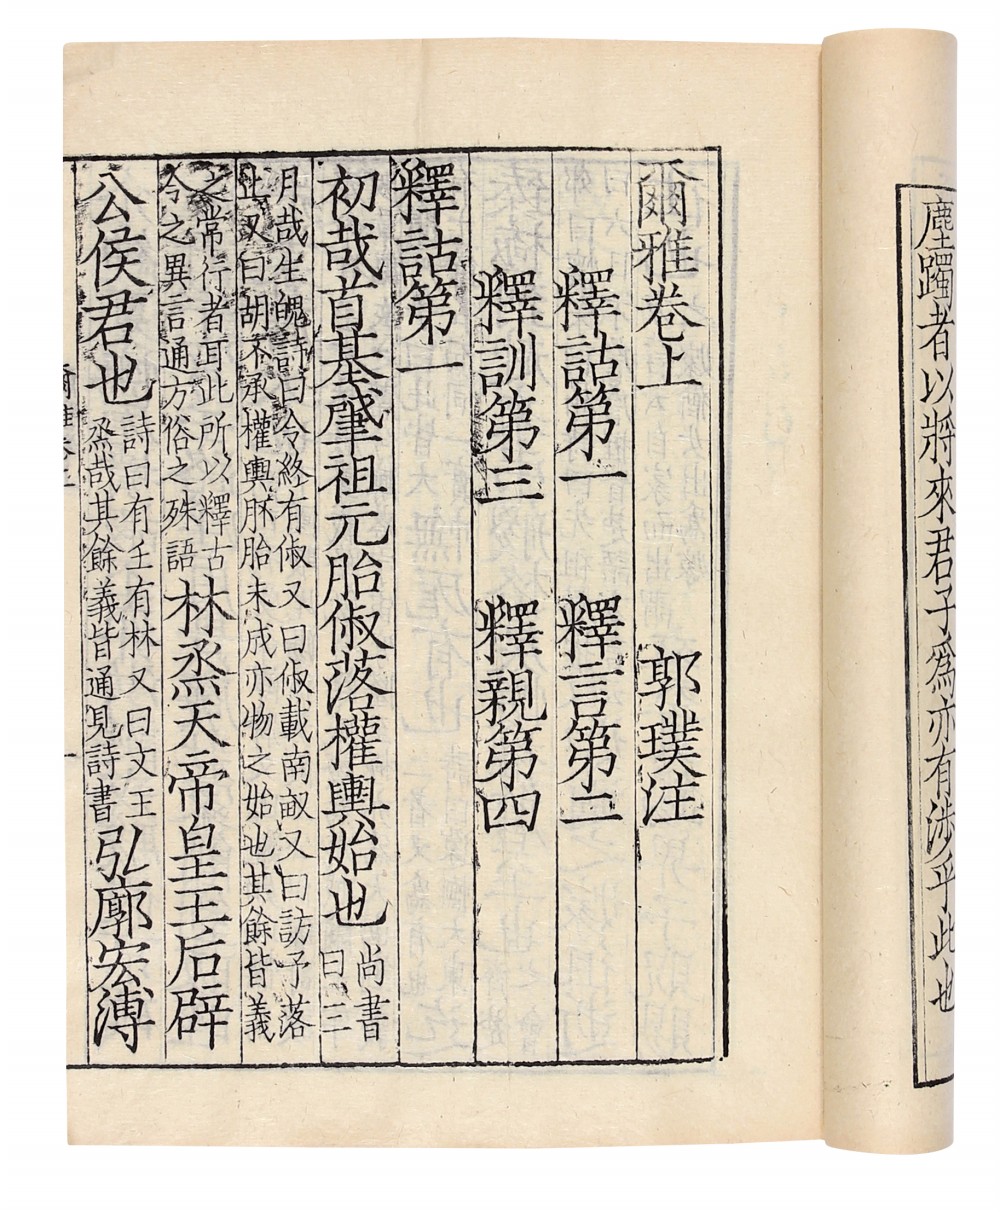 塵躅者以將來君子爲亦有涉乎此也
爾雅卷上 郭璞注
釋詁第一 釋言第二
釋訓第三 釋親第四
釋詁第一
初哉首基肈祖元胎俶落權輿始也 尚書曰三
月哉生魄詩曰令終有俶又曰俶載南畝又曰訪予落
止又曰胡不承權輿胚胎未成亦物之始也其餘皆義
之常行者耳此所以釋古今之異言通方俗之殊語 林烝天帝皇王后辟
公侯君也 詩曰有壬有林又曰文王烝哉其餘義皆通見詩書 弘廓宏溥